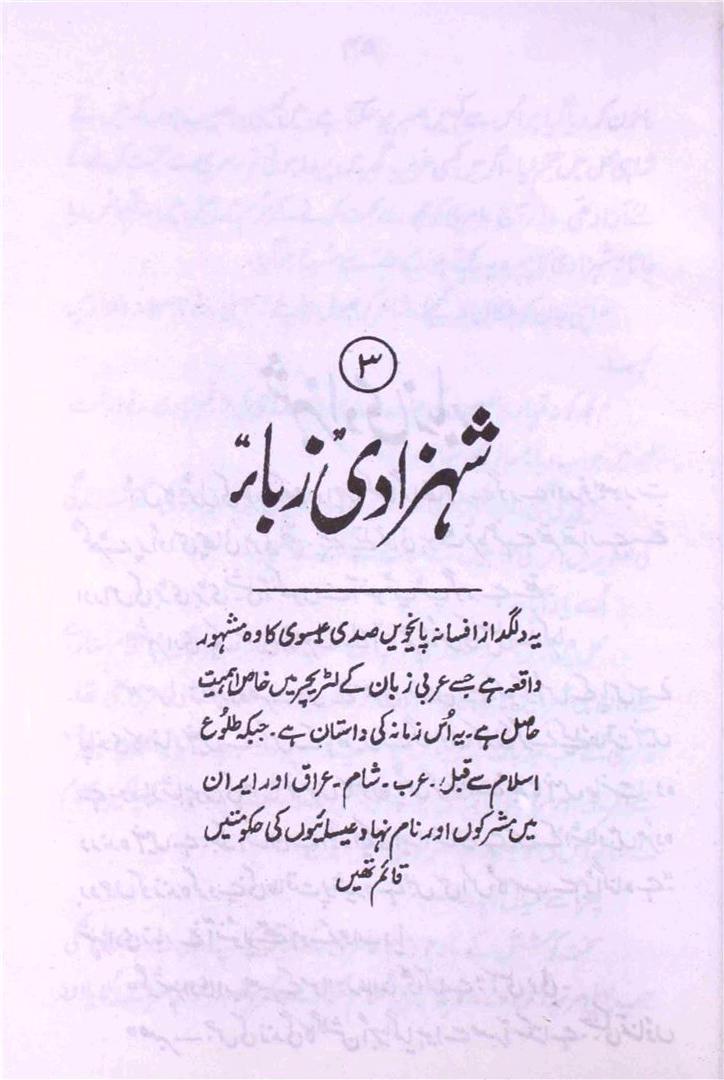 ۳
شہزادیٔ زباءؔ
یہ دلگداز افسانہ پانچویں صدی عیسوی کا وہ مشہور
واقعہ ہے جسے عربی زبان کے لٹریچر میں خاص اہمیت
حاصل ہے۔ یہ اُس زمانہ کی داستان ہے۔ جبکہ طلوُع
اسلام سے قبل، عرب۔ شام۔ عراق اور ایران
میں مشرکوں اور نام نہاد عیسائیوں کی حکومتیں
قائم تھیں